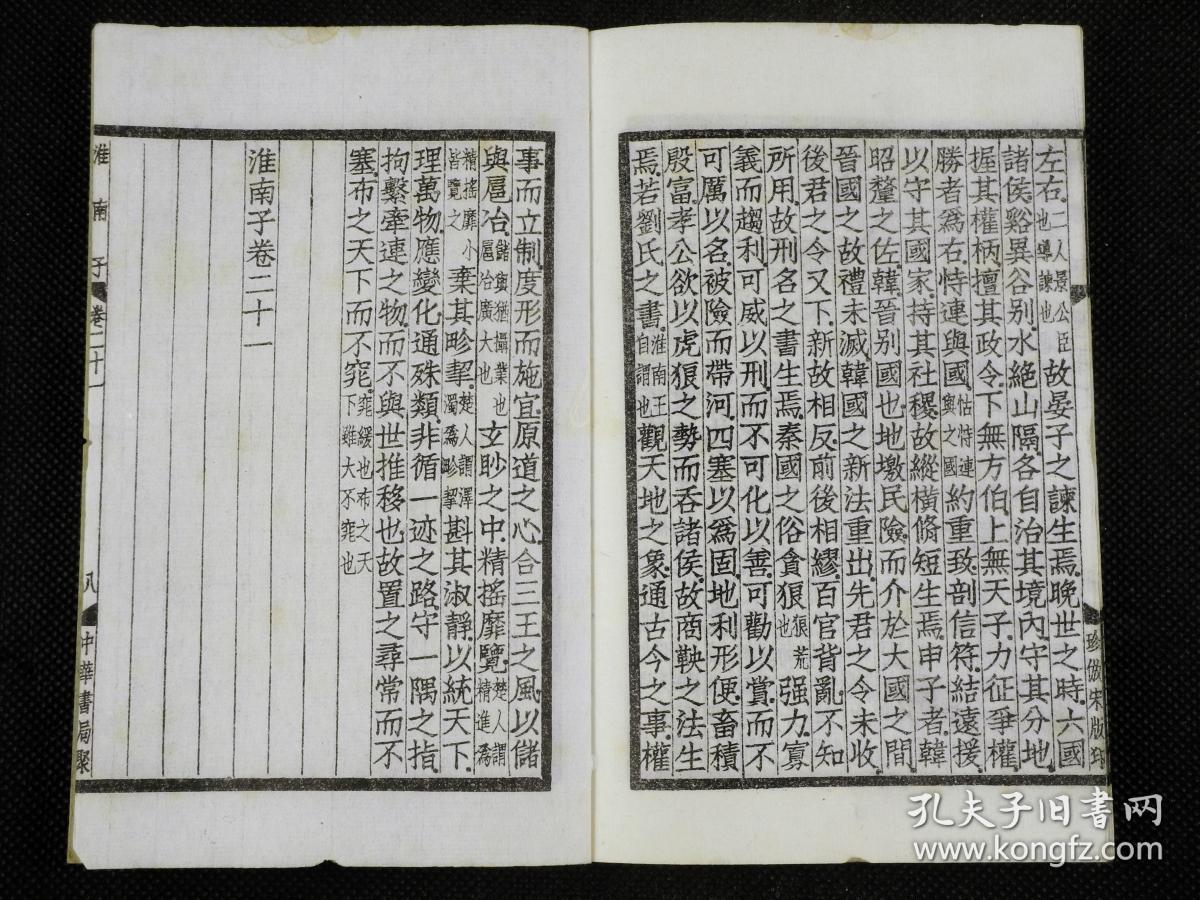 左右二人景公臣也導諫也故晏子之諫生焉晚世之時六國
諸侯谿異谷別水絕山隔各自治其境內守其分地
握其權柄擅其政令下無方伯上無天子力征爭權
勝者爲右恃連與國怙恃連與之國約重致剖信符結遠援
以守其國家持其社稷故縱橫脩短生焉申子者韓
昭釐之佐韓晉別國也地墽民險而介於大國之間
晉國之故禮未滅韓國之新法重出先君之令未收
後君之令又下新故相反前後相繆百官背亂不知
所用故刑名之書生焉秦國之俗貪狼狼荒也強力寡
義而趨利可威以刑而不可化以善可勸以賞而不
可厲以名被險而帶河四塞以爲固地利形便畜積
殷富孝公欲以虎狼之勢而吞諸侯故商鞅之法生
焉若劉氏之書淮南王自謂也觀天地之象通古今之事權
珍倣宋版印
事而立制度形而施宜原道之心合三王之風以儲
與扈冶儲與猶攝業也扈冶廣大也玄眇之中精搖靡覽楚人謂精進爲
精搖靡小皆覽之棄其畛挈楚人謂澤濁爲畛挈斟其淑靜以統天下
理萬物應變化通殊類非循一迹之路守一隅之指
拘繫牽連之物而不與世推移也故置之尋常而不
塞布之天下而不窕窕緩也布之天下雖大不窕也
淮南子卷二十一
淮南子 卷二十一 八 中華書局聚
孔夫子旧书网
www.kongfz.com